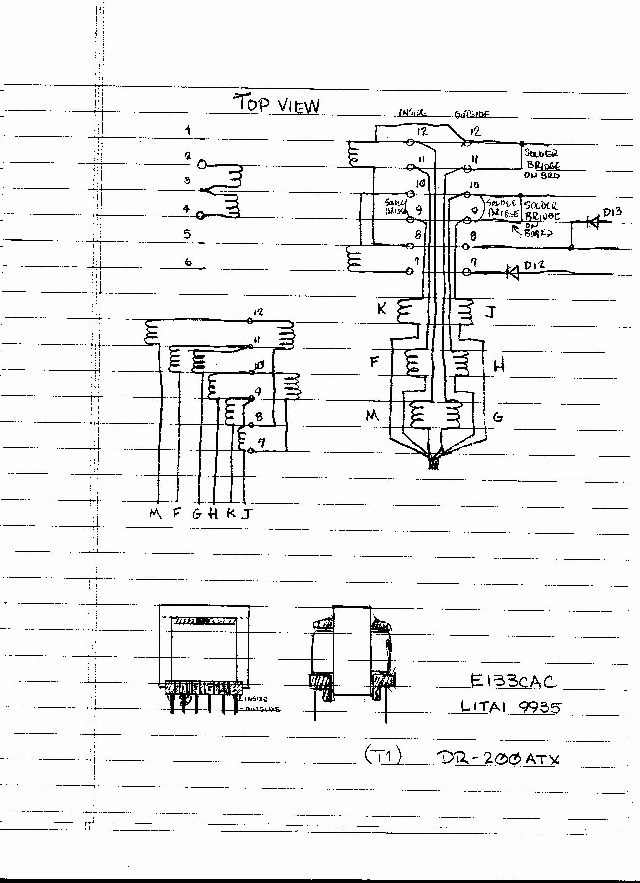 TOP VIEW
INSIDE OUTSIDE
1
2
3
4
5
6
12 12
11 11
10 10
9 9
8 8
7 7
SOLDER
BRIDGE
ON BRD
SOLDER
BRIDGE
SOLDER
BRIDGE
ON
BOARD
D13
D12
K J
F H
M G
12
11
10
9
8
7
M F G H K J
INSIDE
OUTSIDE
E133CAC
LITAI 9935
(T1) DR-200ATX